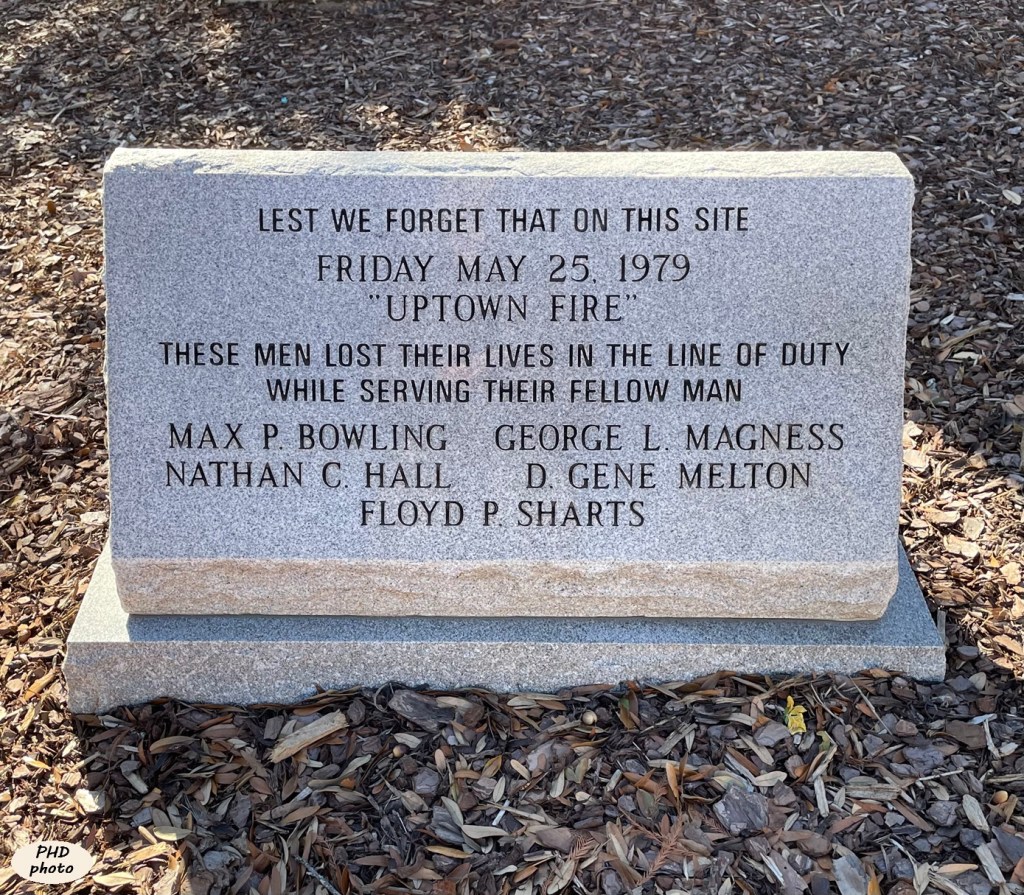 LEST WE FORGET THAT ON THIS SITE
FRIDAY MAY 25, 1979
"UPTOWN FIRE"
THESE MEN LOST THEIR LIVES IN THE LINE OF DUTY
WHILE SERVING THEIR FELLOW MAN
MAX P. BOWLING GEORGE L. MAGNESS
NATHAN C. HALL D. GENE MELTON
FLOYD P. SHARTS
PHD
photo